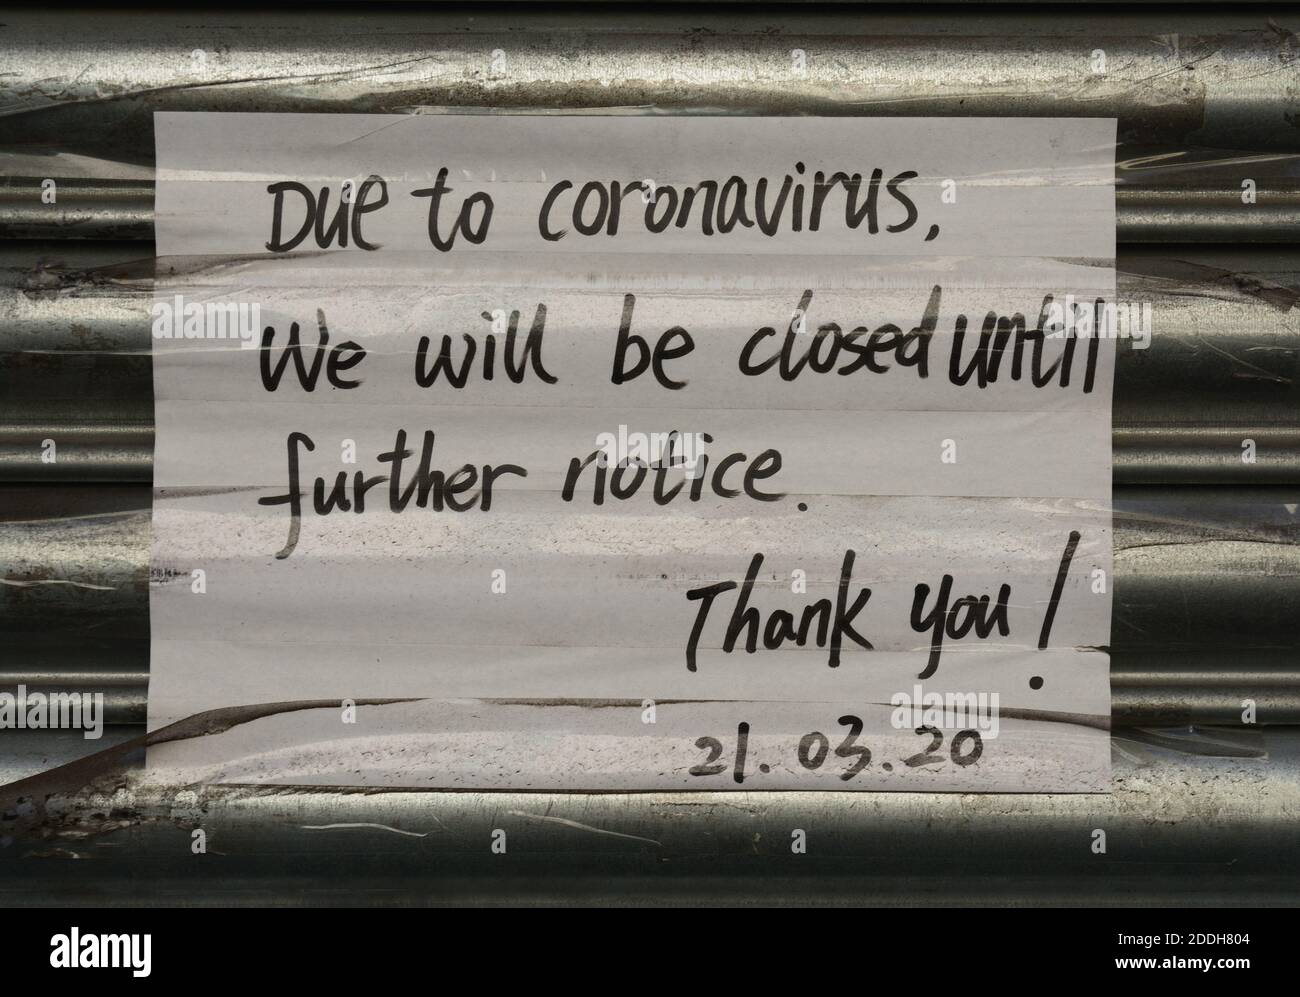 Due to coronavirus,
We will be closed until
further notice.
Thank you!
21.03.20
alamy
alamy
Image ID: 2DDH804
www.alamy.com